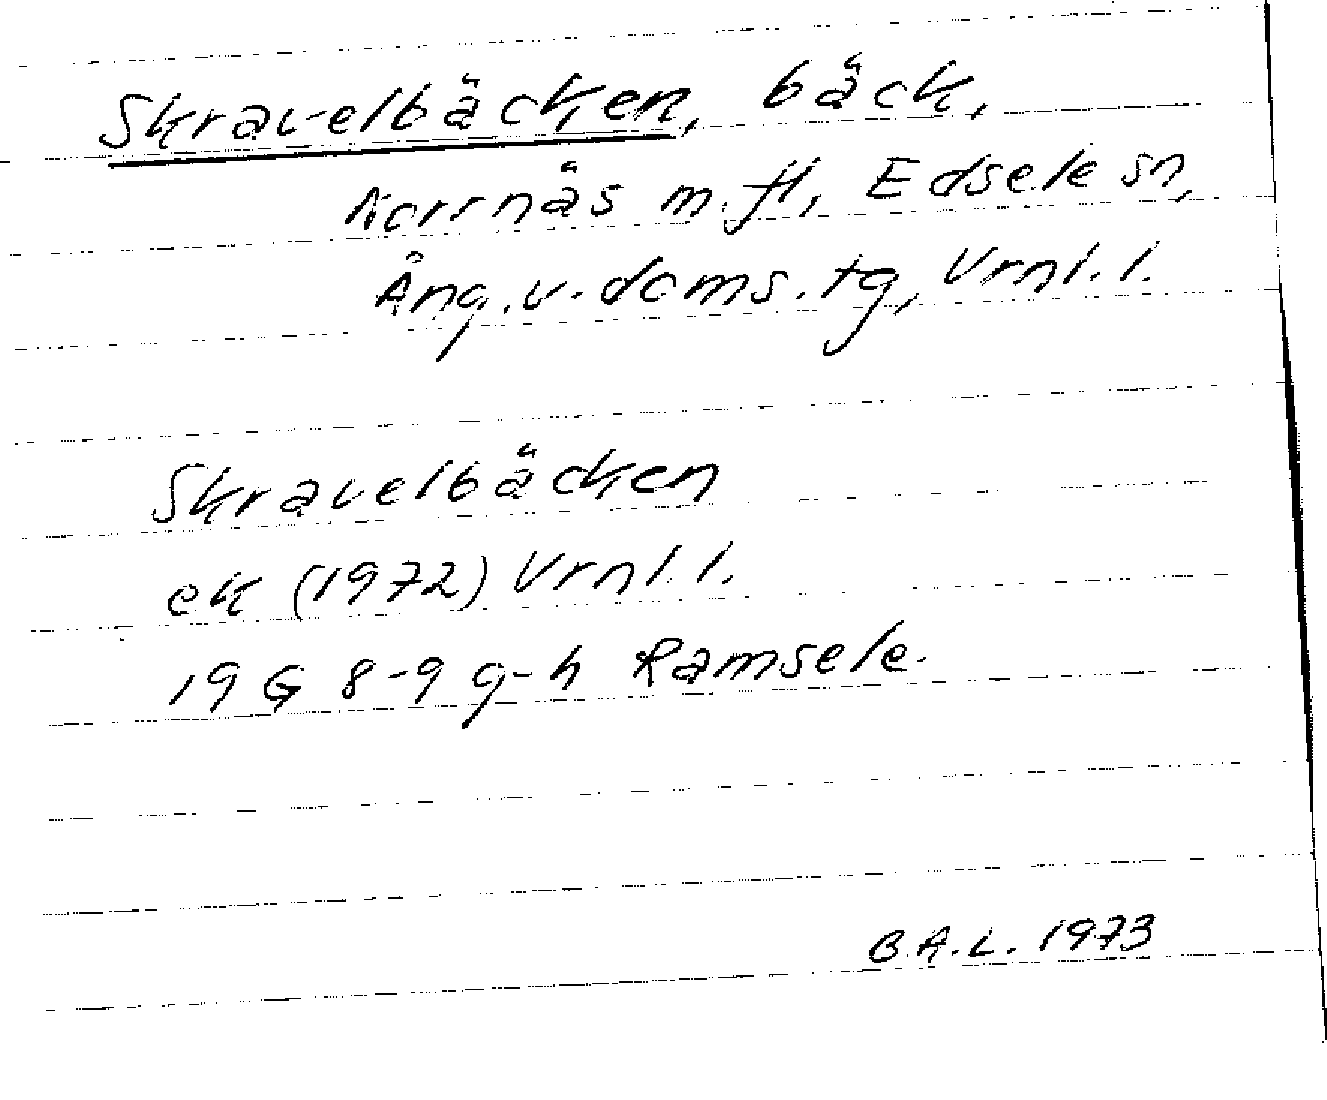 Skravelbäcken, bäck,
Norrnäs m.fl, Edsele sn,
Ång.v.doms.tg, Vrnl.l.
Skravelbäcken
ek (1972) Vrnl.l.
19 G 8-9 g-h Ramsele.
B.A.L. 1973